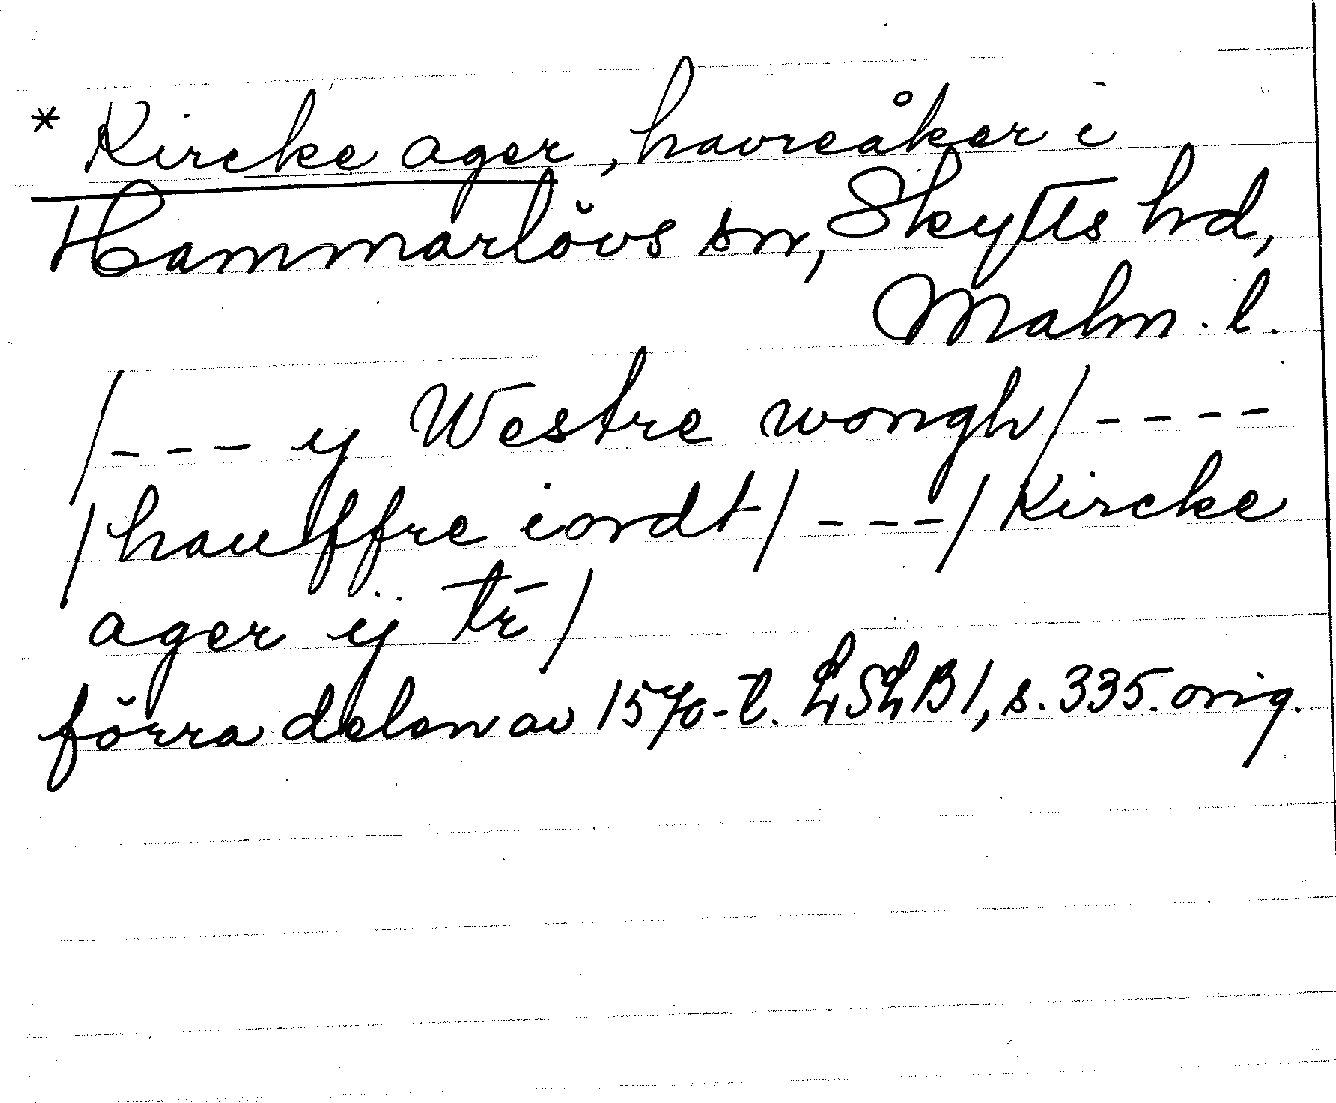 * Kircke ager, havreåker i
Hammarlövs sn, Skytts hd,
Malm. l.
/--- y Westre wongh/----
/hauffre iordt/---/Kircke
ager ij tr̄/
förra delen av 1570-t. LSLB1, s. 335. orig.